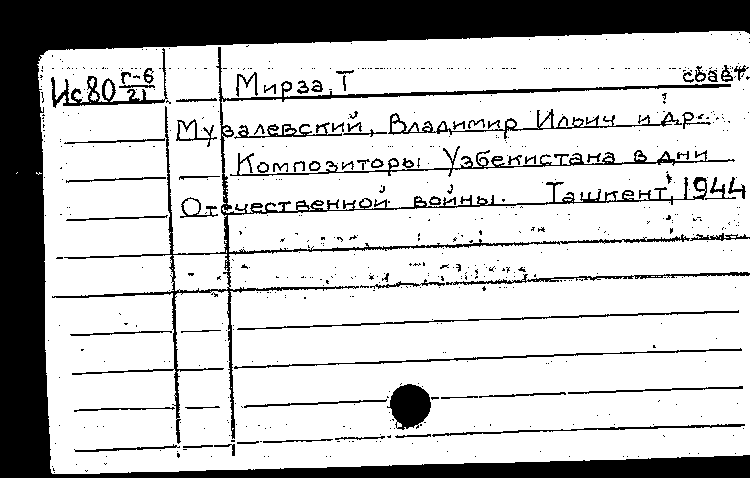 Ис80 г-6/21 Мирза, Т соавт.
Музалевский, Владимир Ильич и др.
Композиторы Узбекистана в дни
Отечественной войны. Ташкент, 1944